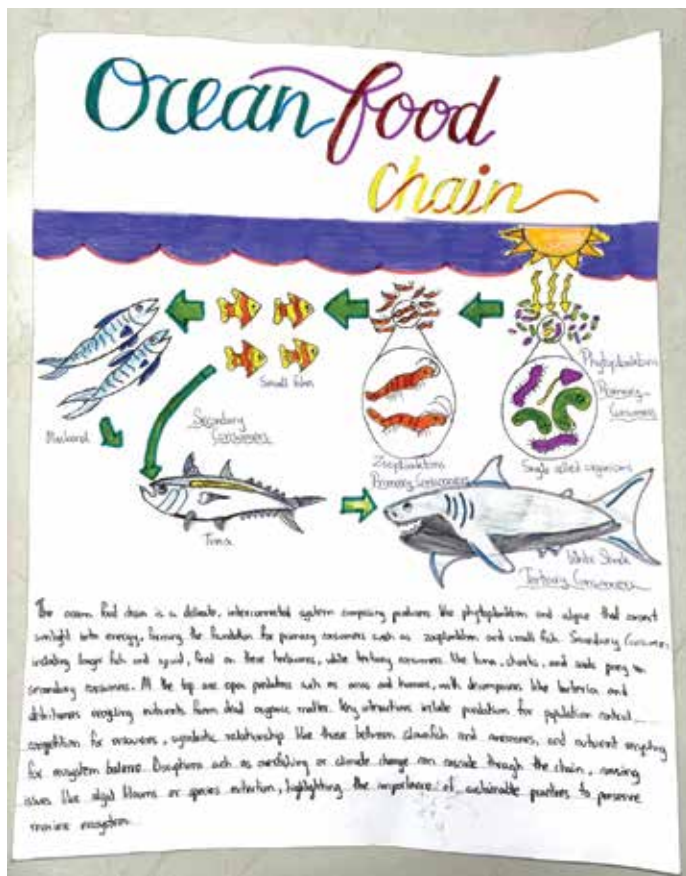 Ocean food
chain
Phytoplanktons
Primary
Consumers
Small fish
Secondary
Consumers
Mackarel
Zooplanktons
Primary Consumers
Single celled organisms
Tuna
White Shark
Tertiary Consumers
The ocean food chain is a delicate, interconnected system composing producers like phytoplankton and algae that convert
sunlight into energy, forming the foundation for primary consumers such as zooplankton and small fish. Secondary Consumers
including larger fish and squid, feed on these herbivores, while tertiary consumers like tuna, sharks, and seals prey on
secondary consumers. At the top are apex predators such as orcas and humans, with decomposers like bacteria and
detritivores recycling nutrients from dead organic matter. Key interactions include predation for population control,
competition for resources, symbiotic relationship like those between clownfish and anemones, and nutrient recycling
for ecosystem balance. Disruptions such as overfishing or climate change can cascade through the chain, causing
issues like algal blooms or species extinction, highlighting the importance of sustainable practices to preserve
marine ecosystem.